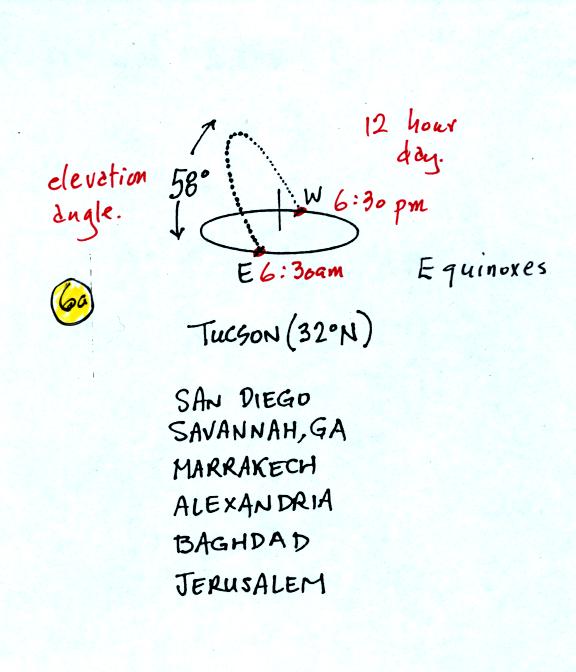 12 hour
day.
elevation
angle.
58°
W
6:30 pm
E 6:30am
Equinoxes
6a
TUCSON (32°N)
SAN DIEGO
SAVANNAH, GA
MARRAKECH
ALEXANDRIA
BAGHDAD
JERUSALEM